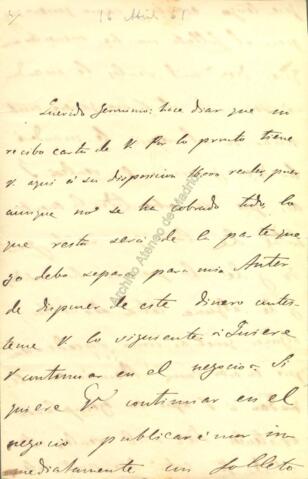 16 Abril 61
Querido Jeronimo: hace dias que no
recibo carta de V. Por lo pronto tiene
V. aqui á su disposicion reales, pues
aunque no se ha cobrado todo, lo
que resta será de la parte que
yo debo separar para mi. Antes
de disponer de este dinero contes-
teme V. lo siguiente. ¿Quiere
V continuar en el negocio. Si
quiere V. continuar en el
negocio publicaremos in
mediatamente un folleto
Archivo Ateneo de Madrid